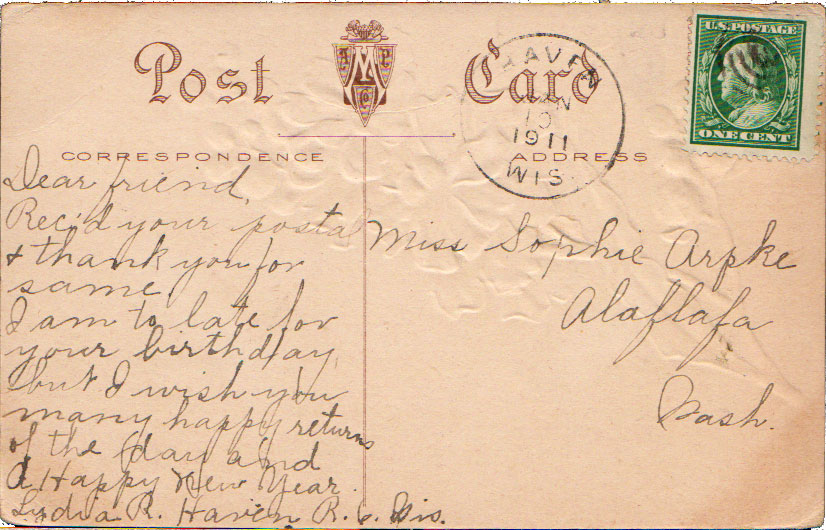 Post Card
A M P C
HAVEN
JAN
10
1911
WIS.
U.S. POSTAGE
ONE CENT
CORRESPONDENCE
ADDRESS
Dear friend,
Rec'd your postal
& thank you for
same.
I am to late for
your birthday,
but I wish you
many happy returns
of the day and
A Happy New Year.
Lydia R. Haven R. 6. Wis.
Miss Sophie Arpke
Alaflafa
Wash.